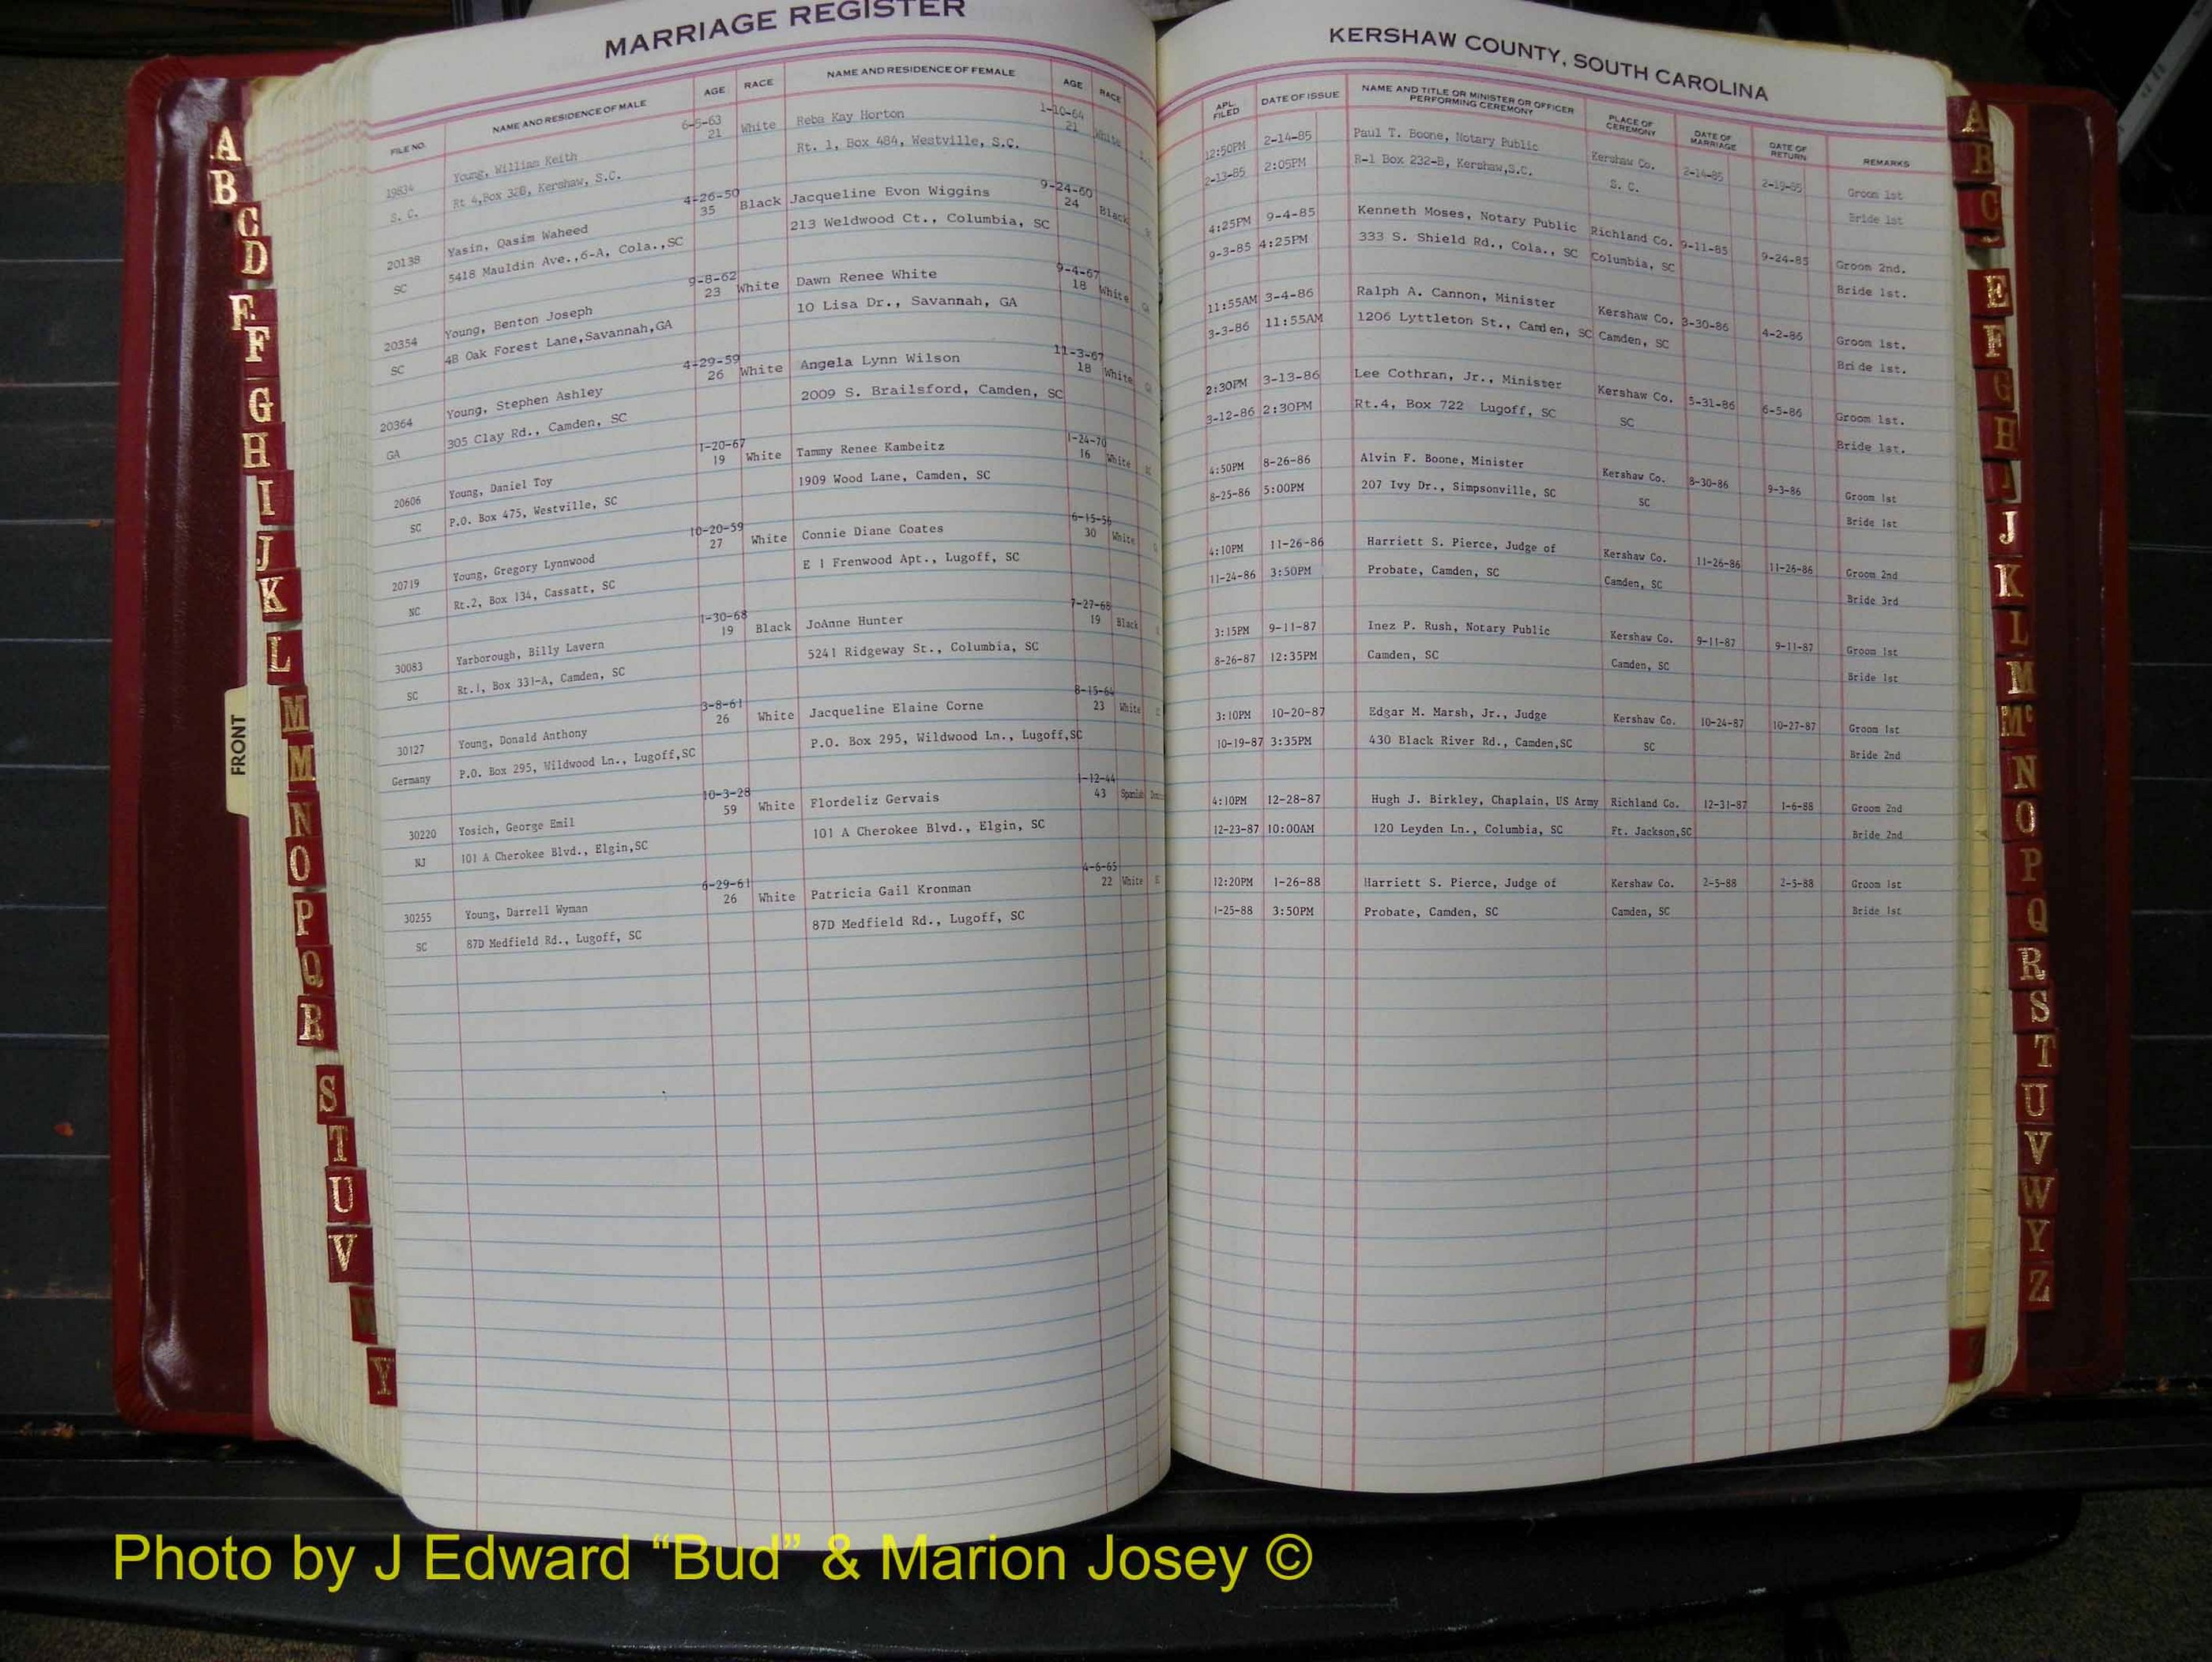 MARRIAGE REGISTER
FILE NO. NAME AND RESIDENCE OF MALE AGE RACE NAME AND RESIDENCE OF FEMALE AGE RACE
6-5-63 1-10-64
19834 Young, William Keith 21 White Reba Kay Horton 21 White
S. C. Rt 4,Box 32B, Kershaw, S.C. Rt. 1, Box 484, Westville, S.C.
4-26-50 9-24-60
20138 Yasin, Qasim Waheed 35 Black Jacqueline Evon Wiggins 24 Black
SC 5418 Mauldin Ave.,6-A, Cola.,SC 213 Weldwood Ct., Columbia, SC
9-8-62 9-4-67
20354 Young, Benton Joseph 23 White Dawn Renee White 18 White
SC 48 Oak Forest Lane,Savannah,GA 10 Lisa Dr., Savannah, GA
4-29-59 11-3-67
20364 Young, Stephen Ashley 26 White Angela Lynn Wilson 18 White
GA 305 Clay Rd., Camden, SC 2009 S. Brailsford, Camden, SC
1-20-67 1-24-70
20606 Young, Daniel Toy 19 White Tammy Renee Kambeitz 16 White
SC P.O. Box 475, Westville, SC 1909 Wood Lane, Camden, SC
10-20-59 6-15-56
20719 Young, Gregory Lynnwood 27 White Connie Diane Coates 30 White
NC Rt.2, Box 134, Cassatt, SC E 1 Frenwood Apt., Lugoff, SC
1-30-68 7-27-68
30083 Yarborough, Billy Lavern 19 Black JoAnne Hunter 19 Black
SC Rt.1, Box 331-A, Camden, SC 5241 Ridgeway St., Columbia, SC
3-8-61 8-15-64
30127 Young, Donald Anthony 26 White Jacqueline Elaine Corne 23 White
Germany P.O. Box 295, Wildwood Ln., Lugoff,SC P.O. Box 295, Wildwood Ln., Lugoff,SC
10-3-28 1-12-44
30220 Yosich, George Emil 59 White Flordeliz Gervais 43 Spanish
NJ 101 A Cherokee Blvd., Elgin,SC 101 A Cherokee Blvd., Elgin, SC
6-29-61 4-6-65
30255 Young, Darrell Wyman 26 White Patricia Gail Kronman 22 White
SC 87D Medfield Rd., Lugoff, SC 87D Medfield Rd., Lugoff, SC
KERSHAW COUNTY, SOUTH CAROLINA
APL. FILED DATE OF ISSUE NAME AND TITLE OR MINISTER OR OFFICER PERFORMING CEREMONY PLACE OF CEREMONY DATE OF MARRIAGE DATE OF RETURN REMARKS
12:50PM 2-14-85 Paul T. Boone, Notary Public Kershaw Co. 2-14-85 2-19-85 Groom 1st
2-13-85 2:05PM R-1 Box 232-B, Kershaw,S.C. S. C. Bride 1st
4:25PM 9-4-85 Kenneth Moses, Notary Public Richland Co. 9-11-85 9-24-85 Groom 2nd.
9-3-85 4:25PM 333 S. Shield Rd., Cola., SC Columbia, SC Bride 1st.
11:55AM 3-4-86 Ralph A. Cannon, Minister Kershaw Co. 3-30-86 4-2-86 Groom 1st.
3-3-86 11:55AM 1206 Lyttleton St., Camden, SC Camden, SC Bride 1st.
2:30PM 3-13-86 Lee Cothran, Jr., Minister Kershaw Co. 5-31-86 6-5-86 Groom 1st.
3-12-86 2:30PM Rt.4, Box 722 Lugoff, SC SC Bride 1st.
4:50PM 8-26-86 Alvin F. Boone, Minister Kershaw Co. 8-30-86 9-3-86 Groom 1st
8-25-86 5:00PM 207 Ivy Dr., Simpsonville, SC SC Bride 1st
4:10PM 11-26-86 Harriett S. Pierce, Judge of Kershaw Co. 11-26-86 11-26-86 Groom 2nd
11-24-86 3:50PM Probate, Camden, SC Camden, SC Bride 3rd
3:15PM 9-11-87 Inez P. Rush, Notary Public Kershaw Co. 9-11-87 9-11-87 Groom 1st
8-26-87 12:35PM Camden, SC Camden, SC Bride 1st
3:10PM 10-20-87 Edgar M. Marsh, Jr., Judge Kershaw Co. 10-24-87 10-27-87 Groom 1st
10-19-87 3:35PM 430 Black River Rd., Camden,SC SC Bride 2nd
4:10PM 12-28-87 Hugh J. Birkley, Chaplain, US Army Richland Co. 12-31-87 1-6-88 Groom 2nd
12-23-87 10:00AM 120 Leyden Ln., Columbia, SC Ft. Jackson,SC Bride 2nd
12:20PM 1-26-88 Harriett S. Pierce, Judge of Kershaw Co. 2-5-88 2-5-88 Groom 1st
1-25-88 3:50PM Probate, Camden, SC Camden, SC Bride 1st
A
B
C
D
E
F
G
H
I
J
K
L
M
M
N
O
P
Q
R
S
T
U
V
W
Y
FRONT
A
B
C
E
F
G
H
I
J
K
L
M
Mc
N
O
P
Q
R
S
T
U
V
W
Y
Z
Photo by J Edward “Bud” & Marion Josey ©